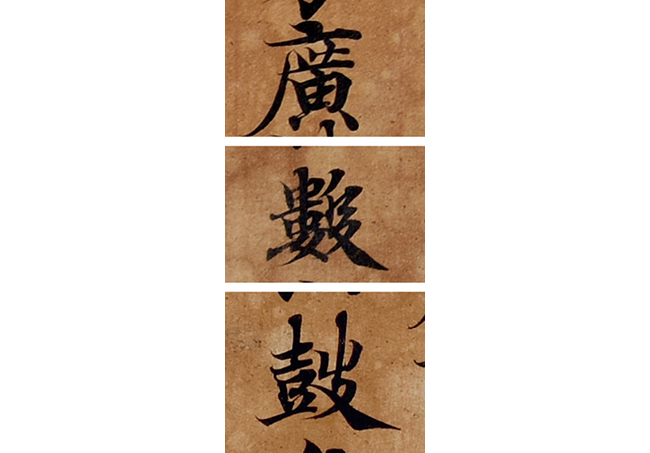 廣
數
鼓